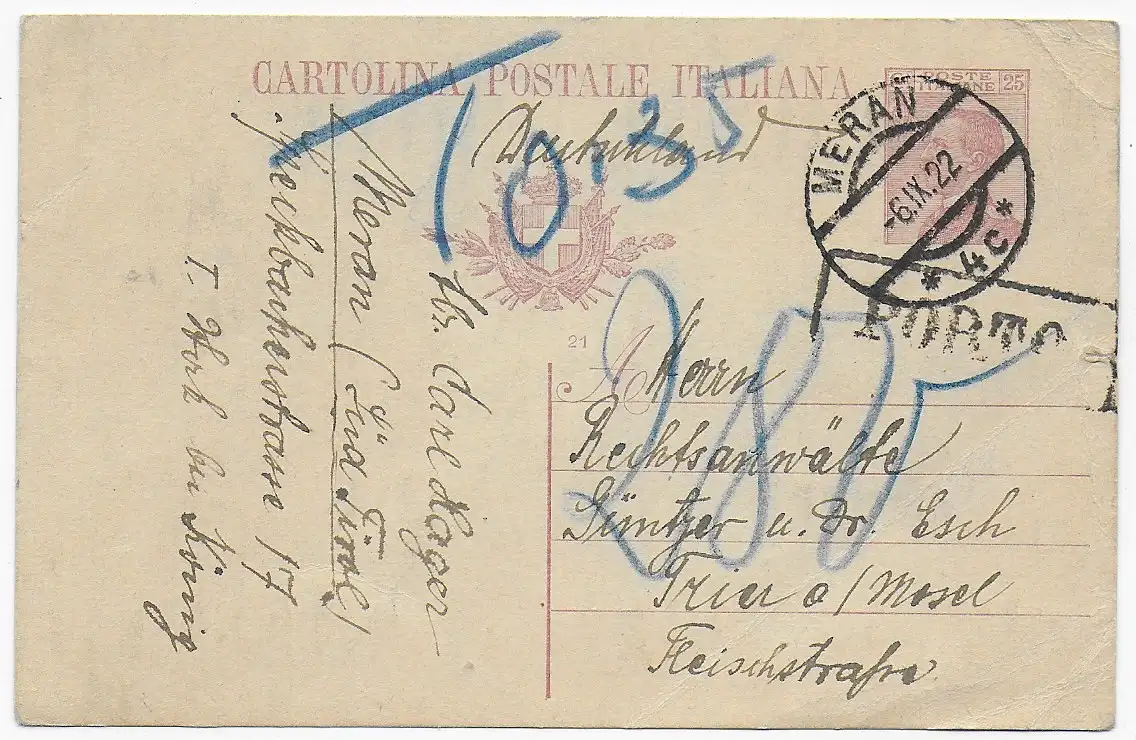 CARTOLINA POSTALE ITALIANA
POSTE
ITALIANE
25
MERAN
-6.IX.22
* 4c *
T 0,35
Deutschland
PORTO
21
A Herrn
Rechtsanwälte
Güntzer u. Dr. Esch
Trier a/Mosel
Fleischstraße
280
Hr. Carl Hager
Meran (Süd Tirol)
17
T. bei König